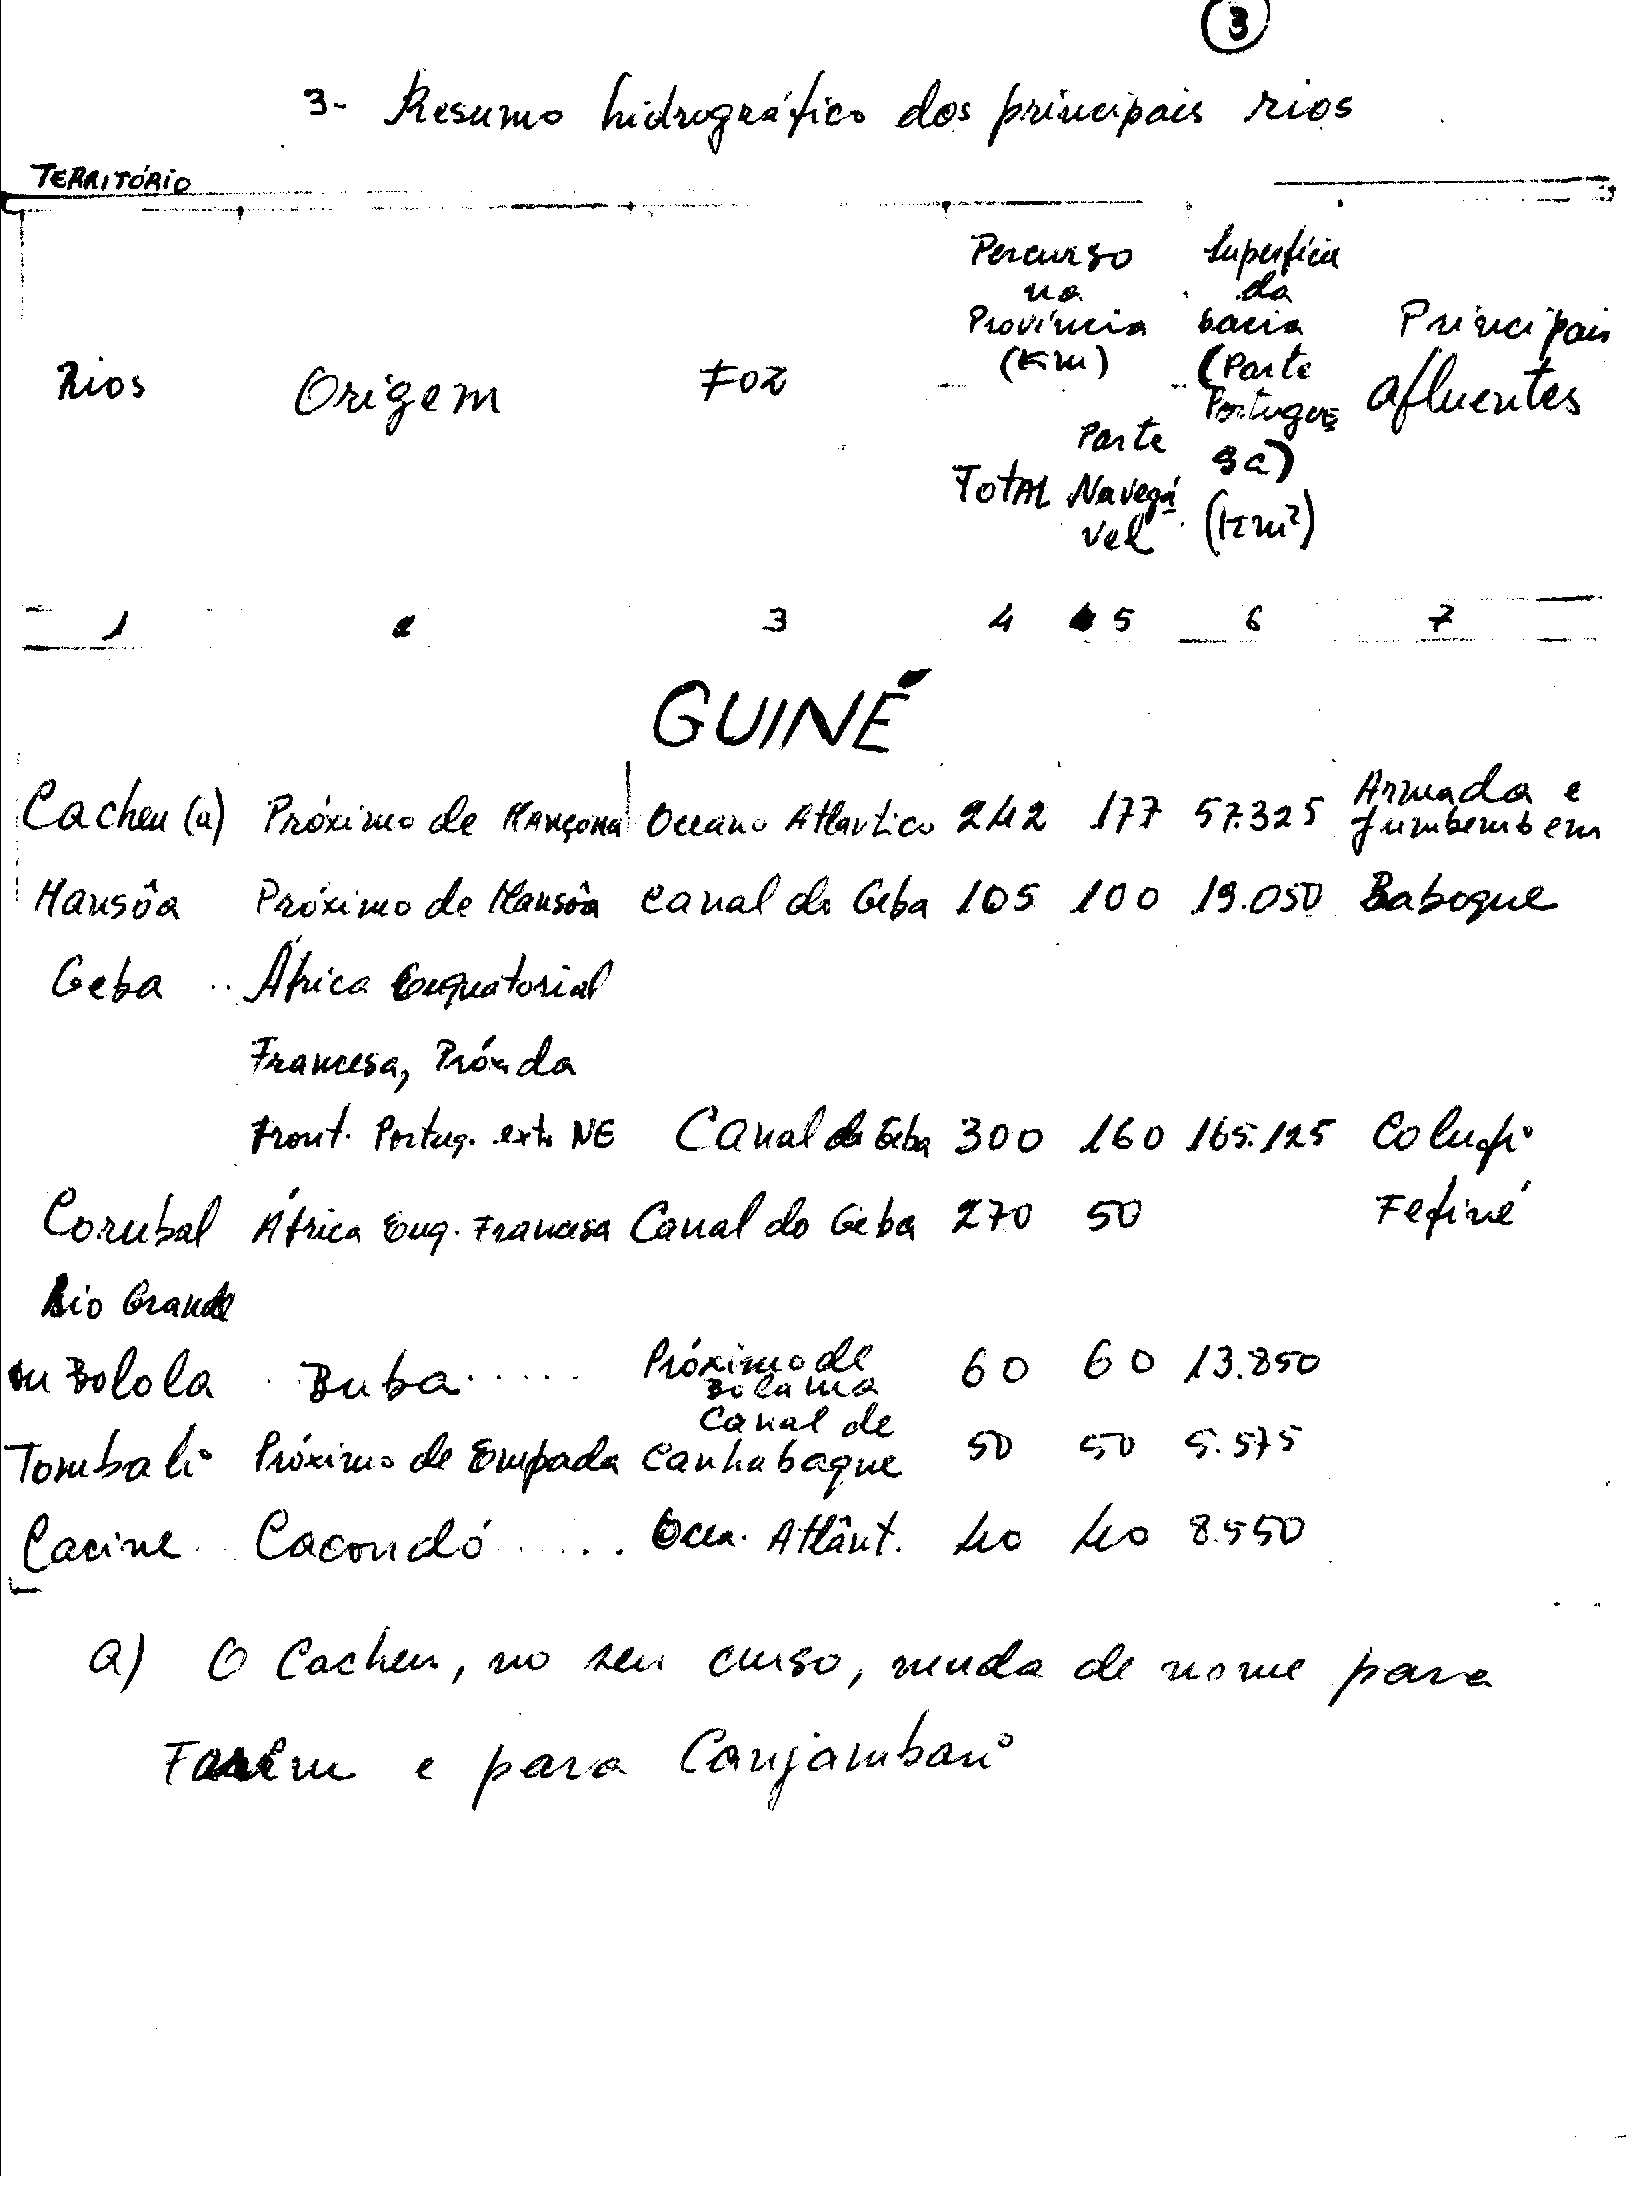 3
3- Resumo hidrográfico dos principais rios
TERRITÓRIO
Rios Origem Foz Percurso na Província (Km) Superfície da bacia (Parte Portugue sa) (Km²) Principais afluentes
TOTAL Parte Navegá vel
1 2 3 4 5 6 7
GUINÉ
Cacheu (a) Próximo de Mançona Oceano Atlantico 242 177 57.325 Armada e Jumbembem
Mansôa Próximo de Mansôa Canal do Geba 105 100 19.050 Baboque
Geba .. África Equatorial
Francesa, Próx. da
Front. Portug. extr. NE Canal do Geba 300 160 165.125 Colufi
Corubal África Equ. Francesa Canal do Geba 270 50 Fefiné
Rio Grande
ou Bolola Buba ..... Próximo de Bolama 60 60 13.850
Tombali Próximo de Empada Canal de Canhabaque 50 50 5.575
Cacine Cacondó .... Ocea. Atlânt. 40 40 8.550
a) O Cacheu, no seu curso, muda de nome para
Farim e para Canjambari